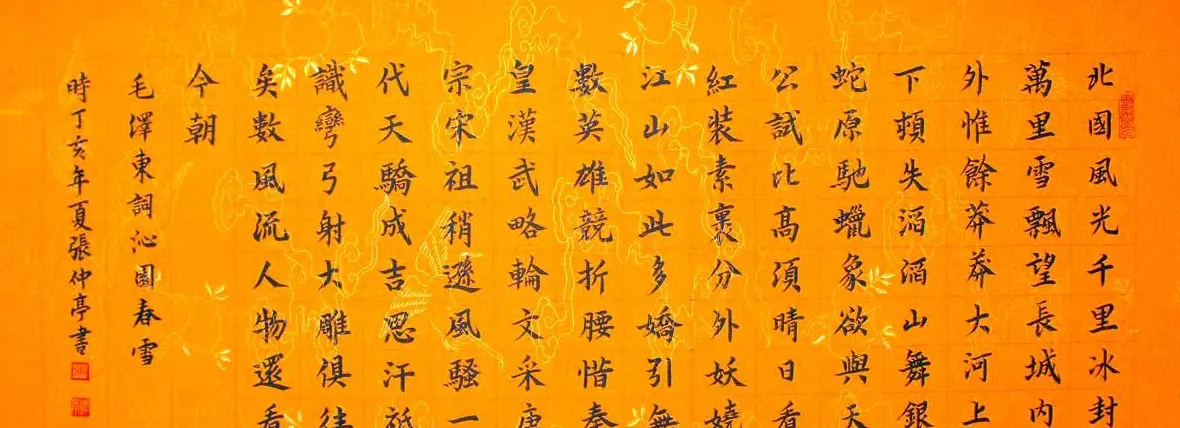 北國風光千里冰封
萬里雪飄望長城内
外惟餘莽莽大河上
下頓失滔滔山舞銀
蛇原馳蠟象欲與天
公試比高須晴日看
紅裝素裹分外妖嬈
江山如此多嬌引無
數英雄競折腰惜秦
皇漢武略輪文采唐
宗宋祖稍遜風騷一
代天驕成吉思汗祗
識彎弓射大雕俱往
矣數風流人物還看
今朝
毛澤東詞沁園春雪
時丁亥年夏張仲亭書